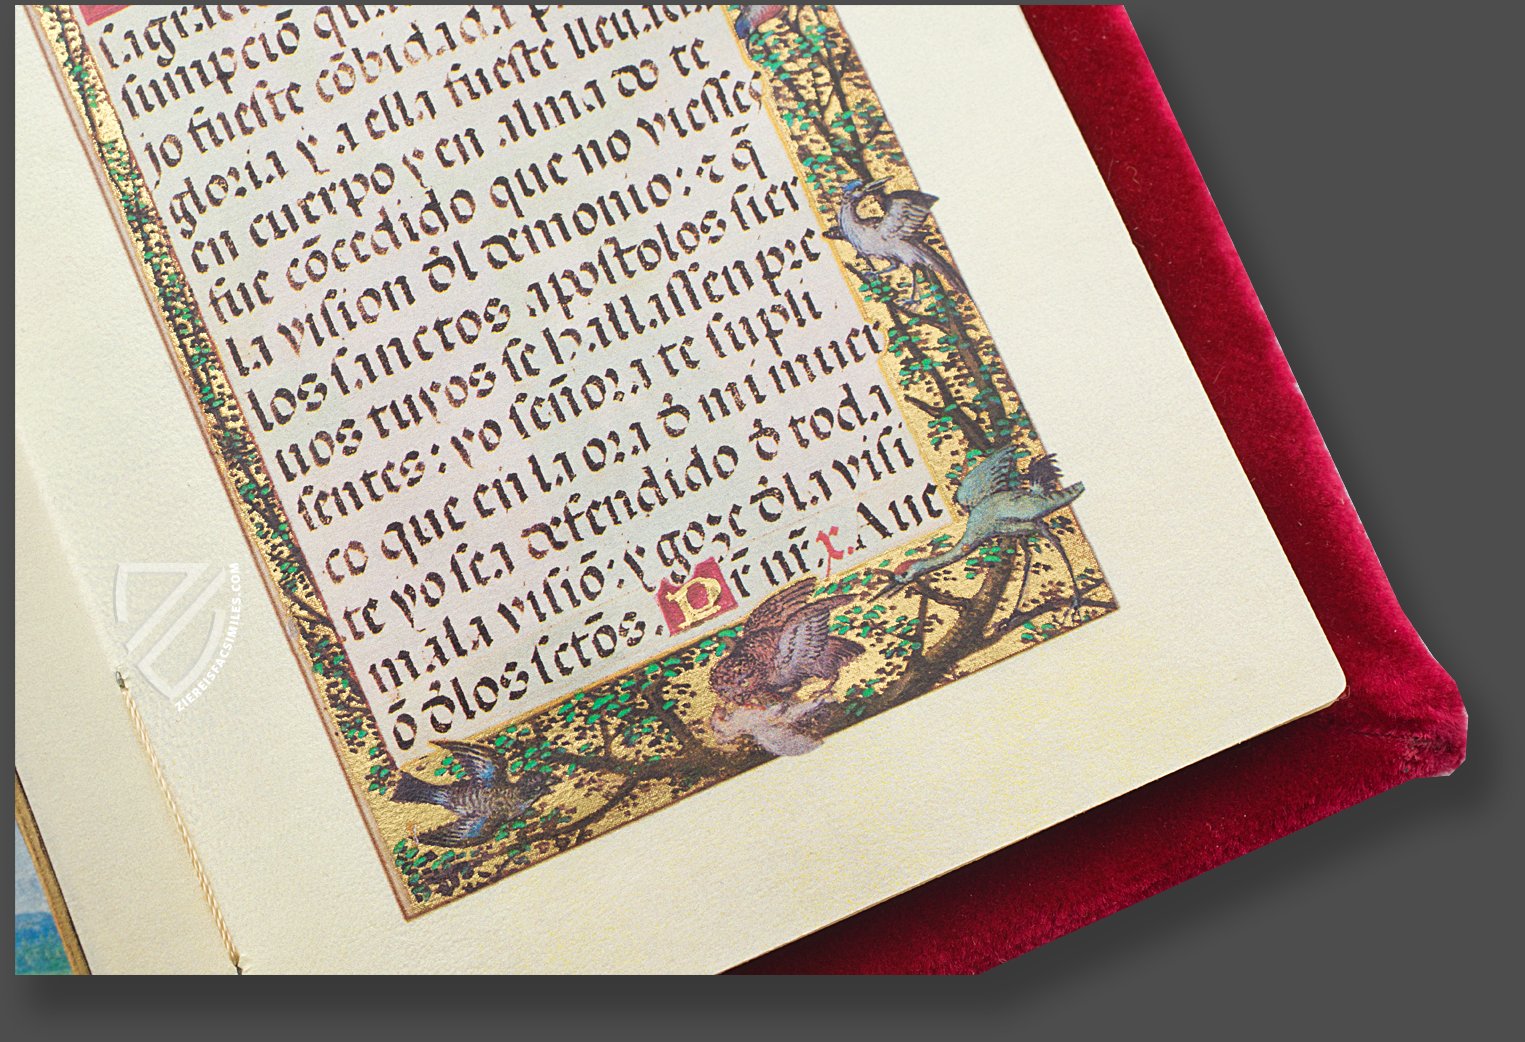 sumpciõ
jo fueste cõbidada
gloria y a ella fueste lleuada
en cuerpo y en alma do te
fue cõcedido que no viesses
la vision dl demonio: ⁊ q̃
los sanctos apostolos sier
uos tuyos se hallassen pre
sentes: yo señora te supli
co que en la ora d̃ mi muer
te yo sea defendido d̃ toda
mala visiõ: y goze d̃ la visi
õ d̃ los sctõs. Pr̃ nr̃. x. Aue
ZIEREISFACSIMILES.COM